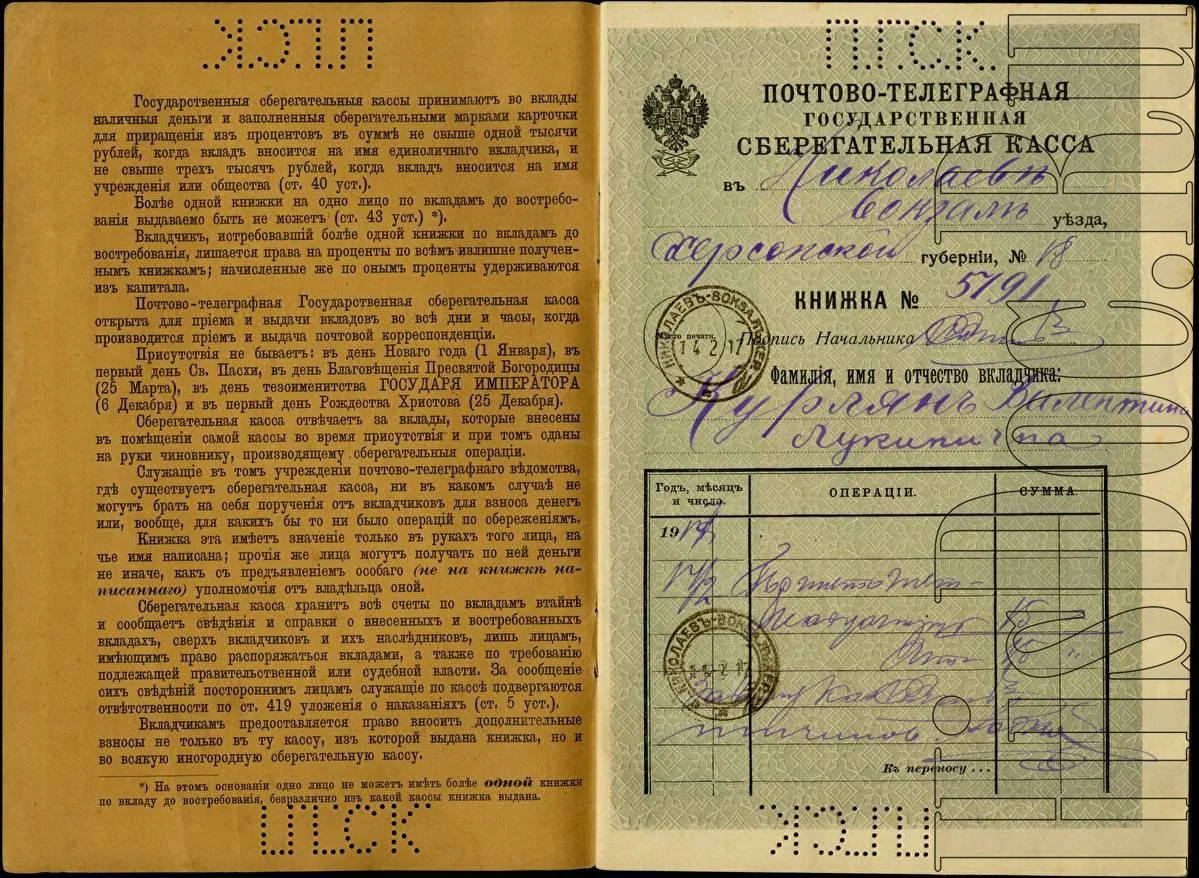 П.Т.С.К.
Государственныя сберегательныя кассы принимаютъ во вклады
наличныя деньги и заполненныя сберегательными марками карточки
для приращенія изъ процентовъ въ суммѣ не свыше одной тысячи
рублей, когда вкладъ вносится на имя единоличнаго вкладчика, и
не свыше трехъ тысячъ рублей, когда вкладъ вносится на имя
учрежденія или общества (ст. 40 уст.).
Болѣе одной книжки на одно лицо по вкладамъ до востребо-
ванія выдаваемо быть не можетъ (ст. 43 уст.) *).
Вкладчикъ, истребовавшій болѣе одной книжки по вкладамъ до
востребованія, лишается права на проценты по всѣмъ излишне получен-
нымъ книжкамъ; начисленные же по онымъ проценты удерживаются
изъ капитала.
Почтово-телеграфная Государственная сберегательная касса
открыта для пріема и выдачи вкладовъ во всѣ дни и часы, когда
производится пріемъ и выдача почтовой корреспонденціи.
Присутствія не бываетъ: въ день Новаго года (1 Января), въ
первый день Св. Пасхи, въ день Благовѣщенія Пресвятой Богородицы
(25 Марта), въ день тезоименитства ГОСУДАРЯ ИМПЕРАТОРА
(6 Декабря) и въ первый день Рождества Христова (25 Декабря).
Сберегательная касса отвѣчаетъ за вклады, которые внесены
въ помѣщеніи самой кассы во время присутствія и при томъ сданы
на руки чиновнику, производящему сберегательныя операціи.
Служащіе въ томъ учрежденіи почтово-телеграфнаго вѣдомства,
гдѣ существуетъ сберегательная касса, ни въ какомъ случаѣ не
могутъ брать на себя порученія отъ вкладчиковъ для взноса денегъ
или, вообще, для какихъ бы то ни было операцій по сбереженіямъ.
Книжка эта имѣетъ значеніе только въ рукахъ того лица, на
чье имя написана; прочія же лица могутъ получать по ней деньги
не иначе, какъ съ предъявленіемъ особаго (не на книжкѣ на-
писаннаго) уполномочія отъ владѣльца оной.
Сберегательная касса хранитъ всѣ счеты по вкладамъ втайнѣ
и сообщаетъ свѣдѣнія и справки о внесенныхъ и востребованныхъ
вкладахъ, сверхъ вкладчиковъ и ихъ наслѣдниковъ, лишь лицамъ,
имѣющимъ право распоряжаться вкладами, а также по требованію
подлежащей правительственной или судебной власти. За сообщеніе
сихъ свѣдѣній постороннимъ лицамъ служащіе по кассѣ подвергаются
отвѣтственности по ст. 419 уложенія о наказаніяхъ (ст. 5 уст.).
Вкладчикамъ предоставляется право вносить дополнительные
взносы не только въ ту кассу, изъ которой выдана книжка, но и
во всякую иногородную сберегательную кассу.
*) На этомъ основаніи одно лицо не можетъ имѣть болѣе одной книжки
по вкладу до востребованія, безразлично изъ какой кассы книжка выдана.
П.Т.С.К.
П.Т.С.К.
ПОЧТОВО-ТЕЛЕГРАФНАЯ
ГОСУДАРСТВЕННАЯ
СБЕРЕГАТЕЛЬНАЯ КАССА
въ Николаевѣ
вокзалъ уѣзда,
Херсонской губерніи, № 18
КНИЖКА № 5791
Подпись Начальника
НИКОЛАЕВЪ-ВОКЗАЛЪ ХЕР.
14 2 17
Фамилія, имя и отчество вкладчика:
Курлянъ Валентина
Лукинична
Годъ, мѣсяцъ и число.
ОПЕРАЦІИ.
СУММА.
1917
17/2
15
НИКОЛАЕВЪ-ВОКЗАЛЪ ХЕР.
Къ переносу . . .
П.Т.С.К.